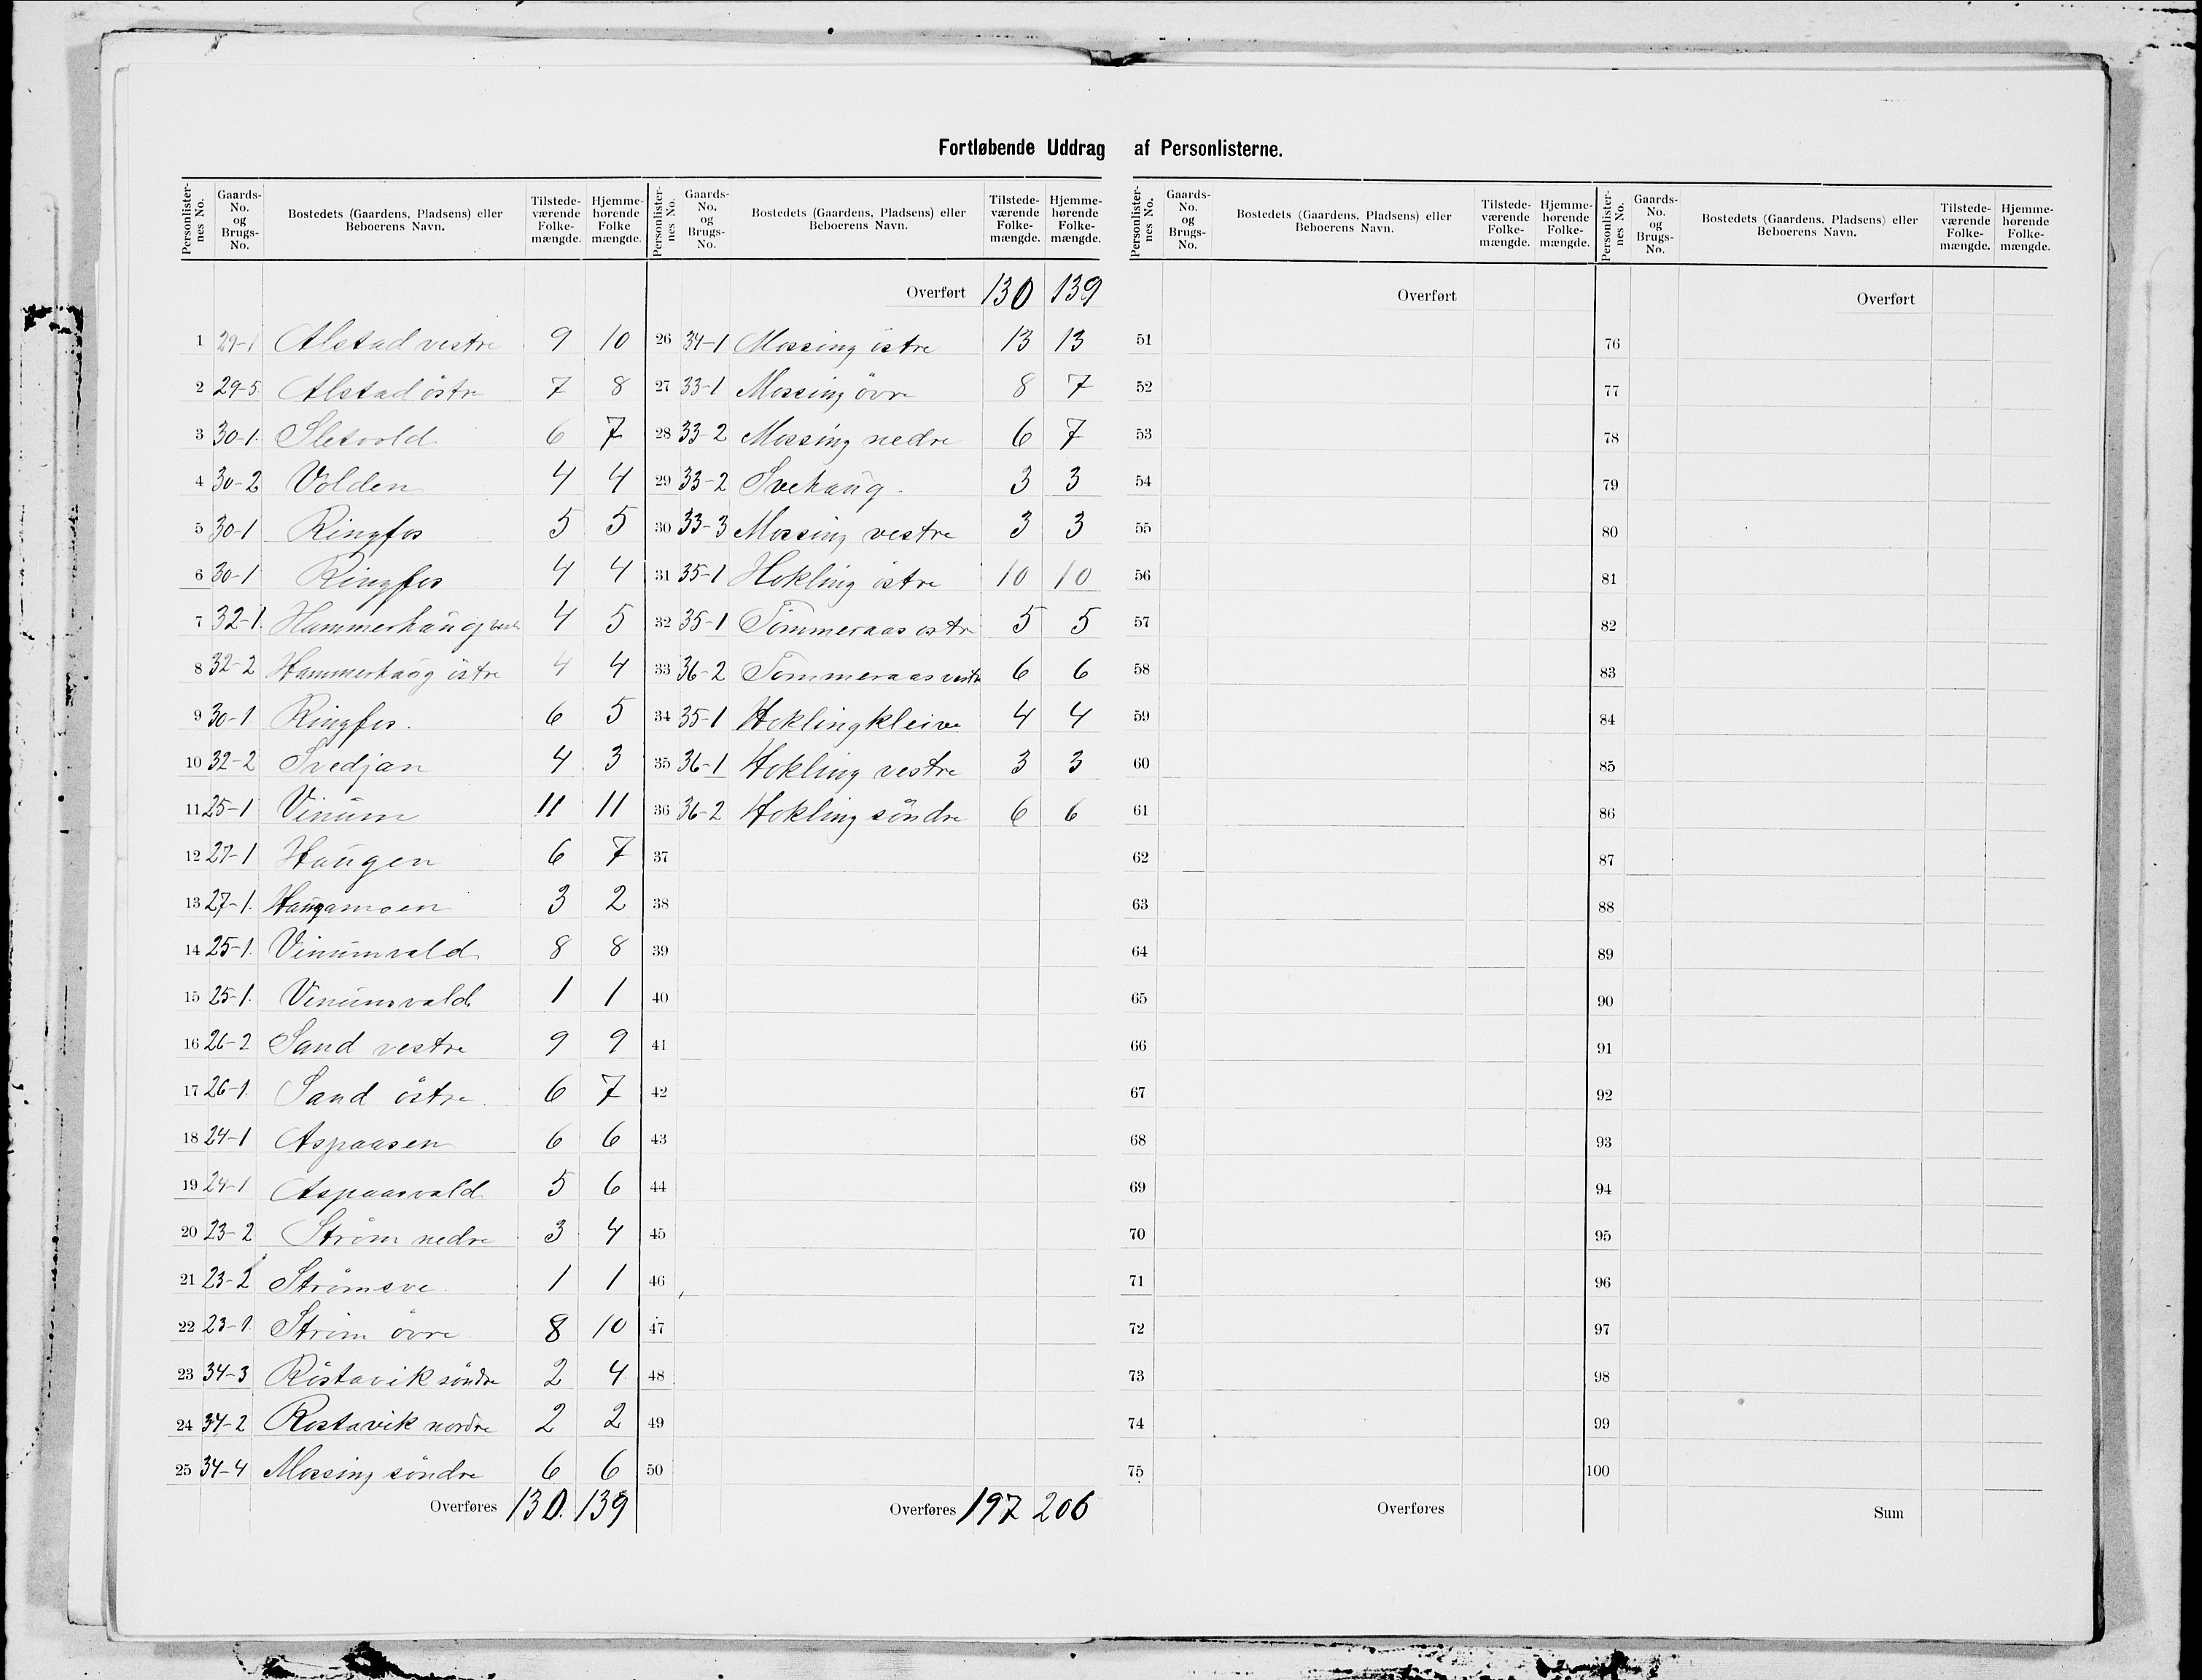 Fortløbende Uddrag af Personlisterne.
Personlisternes No. Gaards-No. og Brugs-No. Bostedets (Gaardens, Pladsens) eller Beboerens Navn. Tilstedeværende Folkemængde. Hjemmehørende Folkemængde.
1 29-1 Alstad vestre 9 10
2 29-5 Alstad östre 7 8
3 30-1. Sletvold 6 7
4 30-2 Volden 4 4
5 30-1 Ringfos 5 5
6 30-1 Ringfos 4 4
7 32-1. Hammerhaug vestr 4 5
8 32-2 Hammerhaug östre 4 4
9 30-1 Ringfos. 6 5
10 32-2 Svedjan 4 3
11 25-1 Vinum 11 11
12 27-1 Haugen 6 7
13 27-1. Haugamoen 3 2
14 25-1. Vinumvald 8 8
15 25-1. Vinumsvald 1 1
16 26-2 Sand vestre 9 9
17 26-1. Sand östre 6 7
18 24-1 Aspaasen 6 6
19 24-1 Aspaasvald 5 6
20 23-2 Strøm nedre 3 4
21 23-2 Strømsve 1 1
22 23-1. Strøm övre 8 10
23 34-3 Röstavik söndre 2 4
24 34-2 Rostavik nordre 2 2
25 34-4 Mossing söndre 6 6
Overføres 130. 139
Personlisternes No. Gaards-No. og Brugs-No. Bostedets (Gaardens, Pladsens) eller Beboerens Navn. Tilstedeværende Folkemængde. Hjemmehørende Folkemængde.
Overført 130 139
26 34-1 Mossing östre 13 13
27 33-1 Mossing övre 8 7
28 33-2 Mossing nedre 6 7
29 33-2 Svehaug. 3 3
30 33-3 Mossing vestre 3 3
31 35-1 Hokling östre 10 10
32 35-1 Tömmeraas ostr 5 5
33 36-2 Tommeraas vestr 6 6
34 35-1 Hoklingkleive 4 4
35 36-1 Hokling vestre 3 3
36 36-2 Hokling söndre 6 6
37
38
39
40
41
42
43
44
45
46
47
48
49
50
Overføres 197 206
Personlisternes No. Gaards-No. og Brugs-No. Bostedets (Gaardens, Pladsens) eller Beboerens Navn. Tilstedeværende Folkemængde. Hjemmehørende Folkemængde.
Overført
51
52
53
54
55
56
57
58
59
60
61
62
63
64
65
66
67
68
69
70
71
72
73
74
75
Overføres
Personlisternes No. Gaards-No. og Brugs-No. Bostedets (Gaardens, Pladsens) eller Beboerens Navn. Tilstedeværende Folkemængde. Hjemmehørende Folkemængde.
Overført
76
77
78
79
80
81
82
83
84
85
86
87
88
89
90
91
92
93
94
95
96
97
98
99
100
Sum